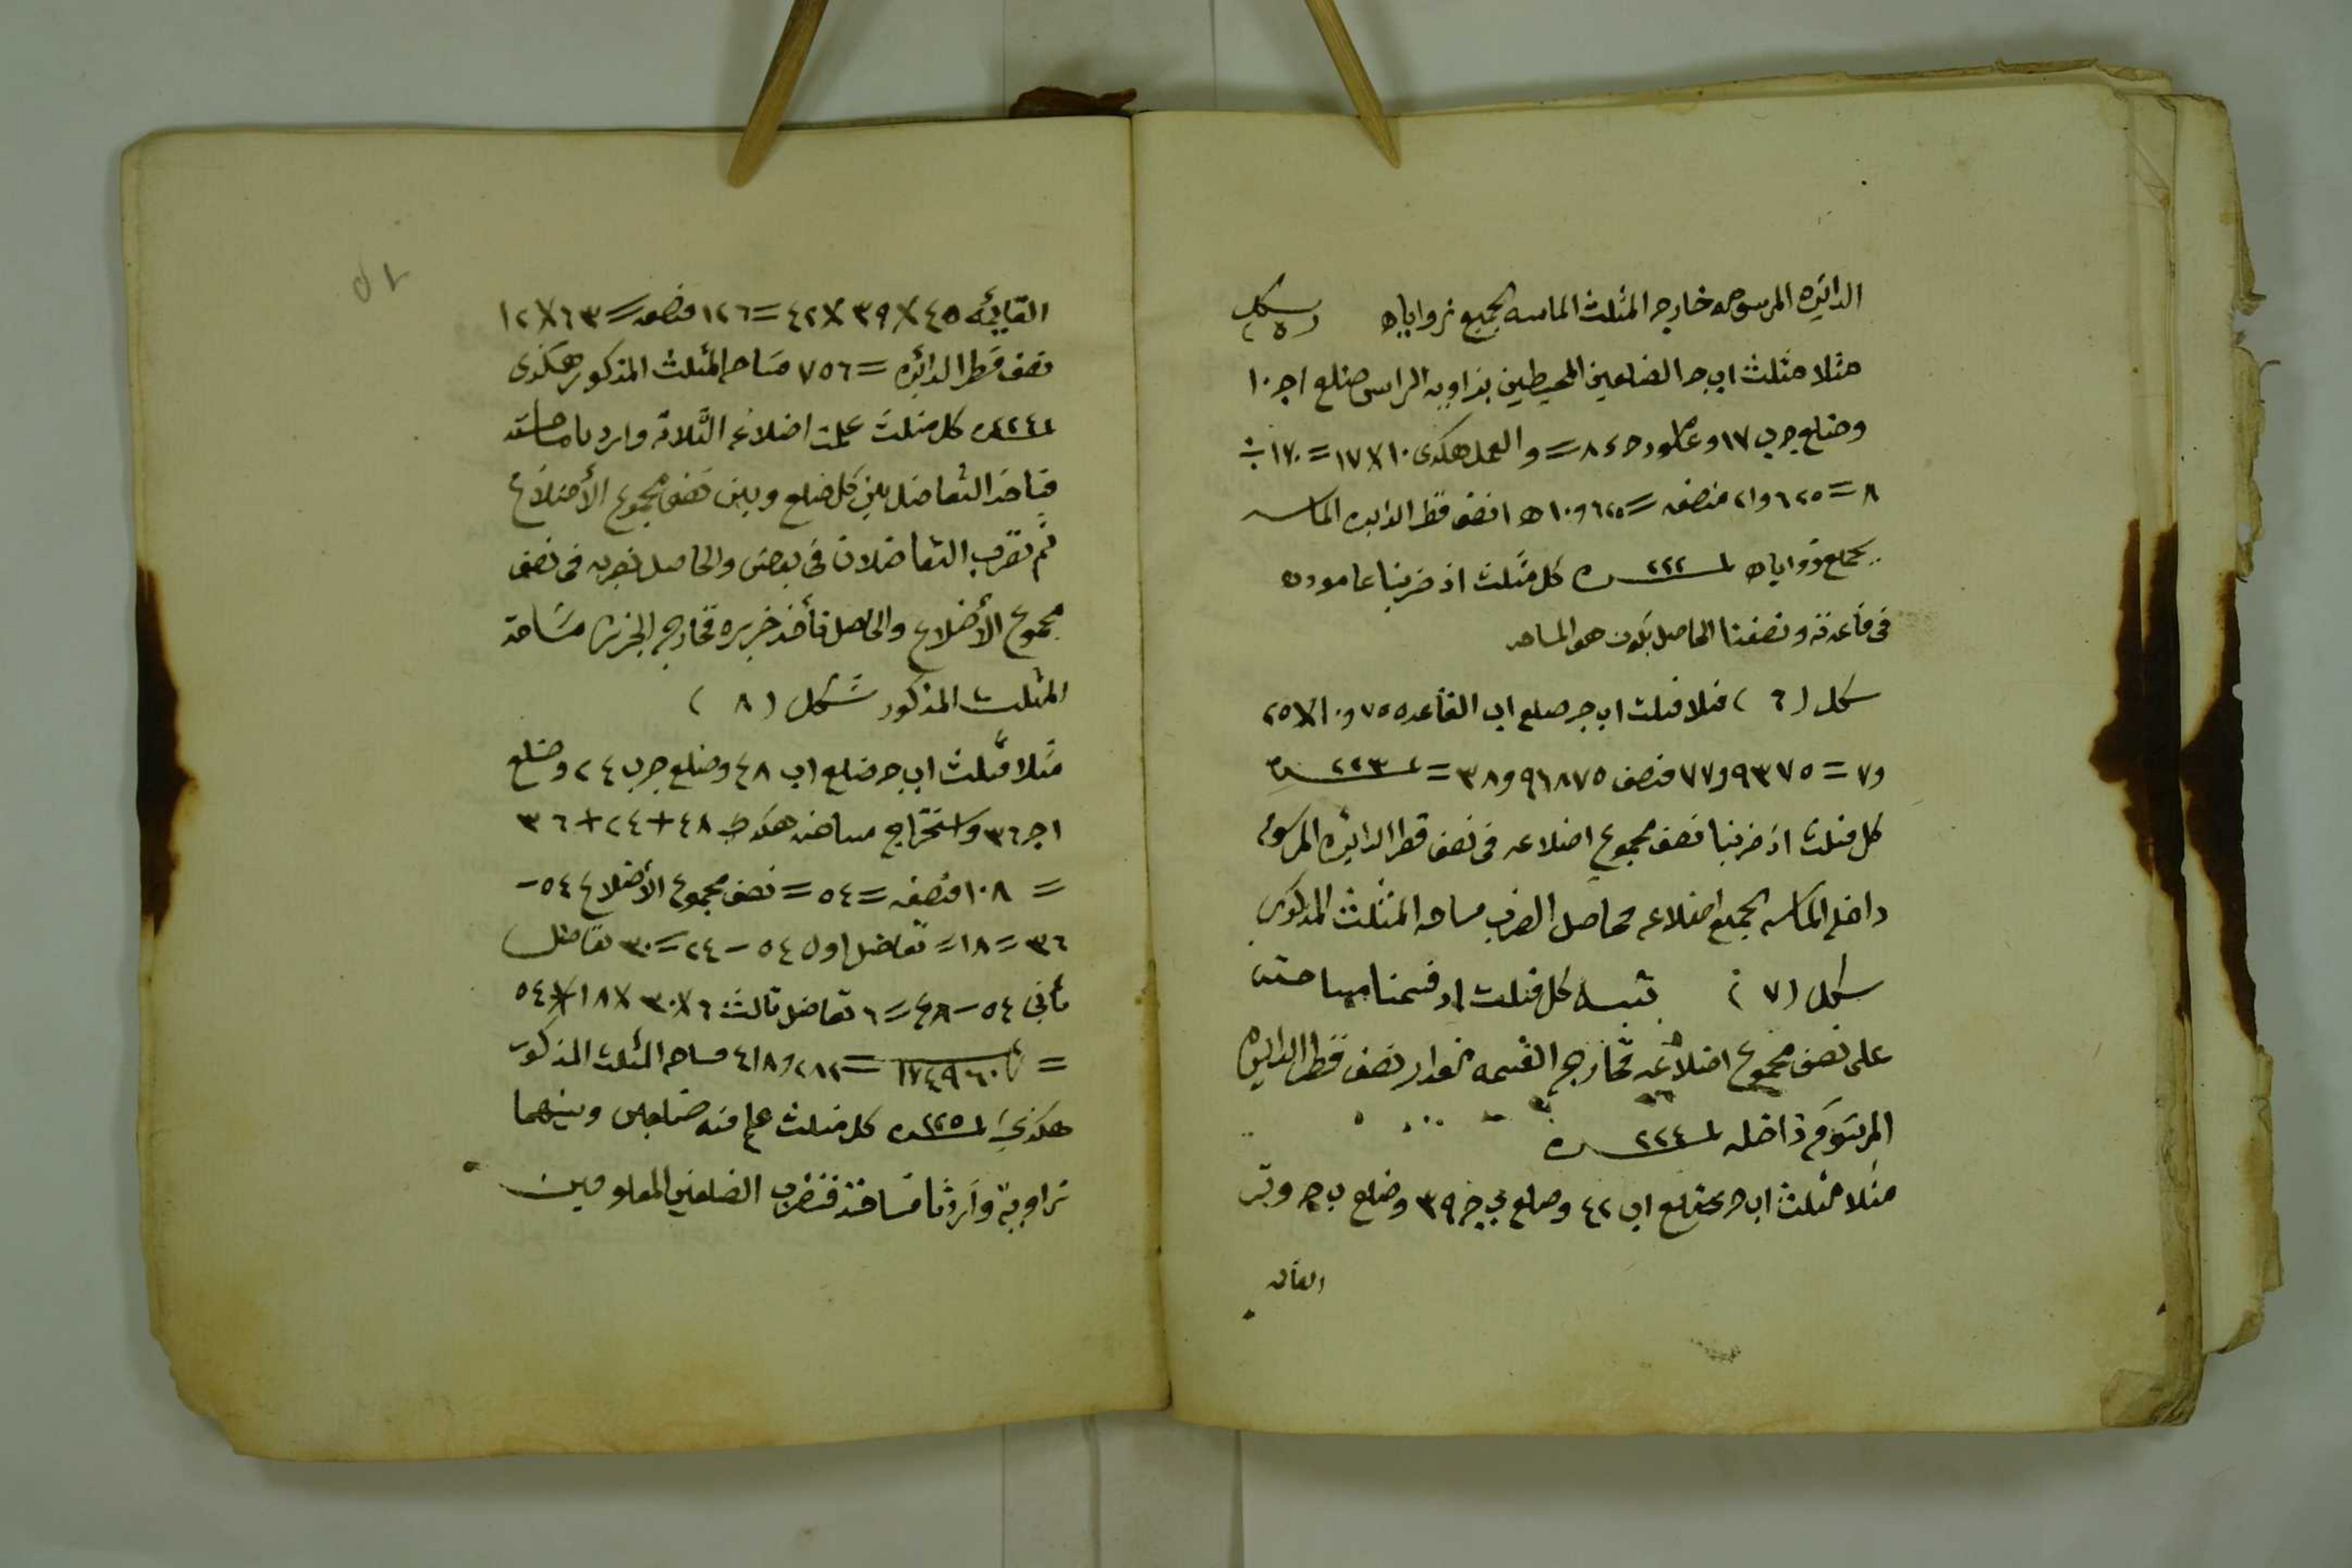 الدائره المرسومه خارجه المثلث الماسه لجميع زواياه شكل (٥)
مثلا مثلث ابج الضلعين المحيطين بزاويه الراس ضلع اج ١٠
وضلع جب ١٧ وعامود ٨ = والعمل هكذى ١٠ × ١٧ = ١٧٠ ÷
٨ = ٢٥ ٦ و٢١ منصفه = ٦٢٥ و١٠ نصف قطر الدايره الماسه
بجمع زواياه لـ٢٢٢ـه كل مثلث اذ ضربنا عاموده
فى قاعدته ونصفنا الحاصل يكون هو المساحه
شكل (٦) مثلا مثلث ابج ضلع اب القاعده ٧٥٥ و١٠ × ٢٥
و٧ = ٩٣٧٥ و٧٧ منصف ٩٦٨٧٥ و٣٨ = لـ٢٢٣ـه
كل مثلث اذ ضربنا نصف مجموع اضلاعه فى نصف قطر الدائيره المرسومه
داخله الماسه لجميع اضلاعه فحاصل الضرب مساحه المثلث المذكور
شكل (٧) تنبيه كل مثلث اذ قسمنا مساحته
على نصف مجموع اضلاعه فخارج القسمه مقدار نصف قطر الدايره
المرسوم داخله لـ٢٢٤ـه
مثلا مثلث ابج ضلع اب ٤٢ وضلع ج ٣٩ وضلع بج وتر
القائه
القايمه ٤٥ × ٣٩ × ٤٢ = ١٢٦ منصفه = ٦٣ × ١٢
نصف قطر الدائره = ٧٥٦ مساحه المثلث المذكور هكذى
لـ٢٢٤ـه كل مثلث علمت اضلاعه الثلاثه واردنا مساحته
فتاخذ التفاضل بين كل ضلع وبين نصف مجموع الأضلاع
ثم تضرب التفاضلات فى بعض والحاصل نضربه فى نصف
مجموع الأضلاع والحاصل نأخذ جزره فخارج الجزر مساحة
المثلث المذكور شكل (٨)
مثلا مثلث ابج ضلع اب ٤٨ وضلع جب ٢٤ وضلع
اج ٣٦ واستخراج مساحته هكذا ٤٨ + ٢٤ + ٣٦
= ١٠٨ منصفه = ٥٤ = نصف مجموع الأضلاع ٥٤ -
٣٦ = ١٨ = تفاضل اول ٥٤ - ٢٤ = ٣٠ تفاضل
ثانى ٥٤ - ٤٨ = ٦ تفاضل ثالث ٦ × ٣٠ × ١٨ × ٥٤
= √١٧٤٩٦٠ = ٢٨٢ و٤١٨ مساحه المثلث المذكور
هكذى لـ٢٢٥ـه كل مثلث علم منه ضلعين وبينهما
زاويه وأردنا مساحته فنضرب الضلعين المعلومين